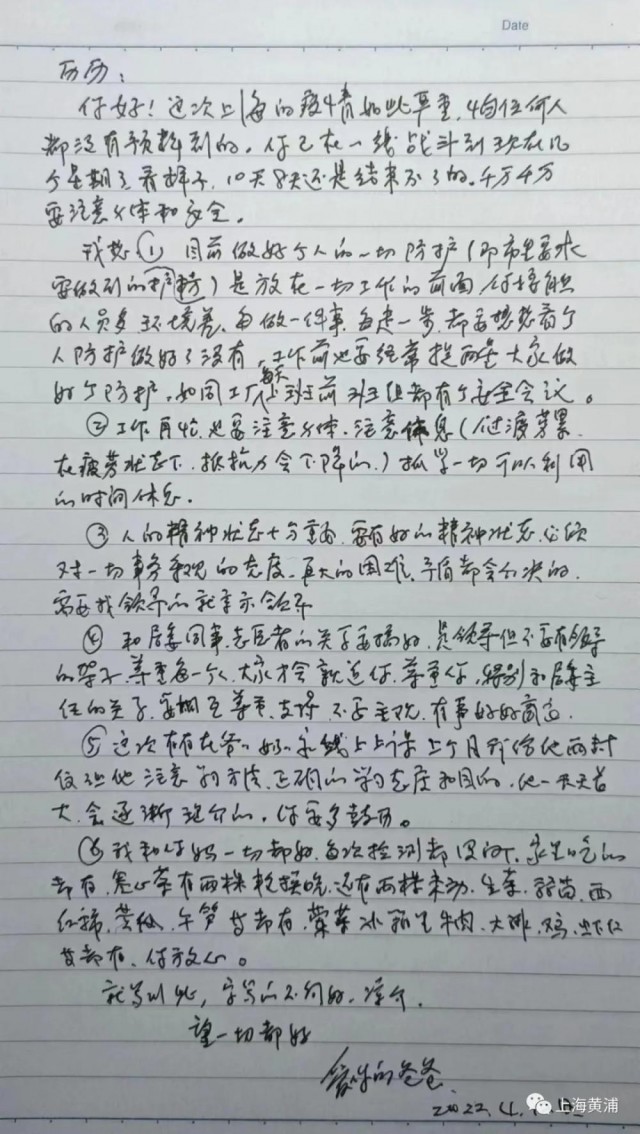 Date
历历：
你好！这次上海的疫情如此严重，恐怕任何人
都没有预料到的。你已在一线战斗到现在几
个星期了看样子，10天8天还是结束不了的。千万千万
要注意身体和安全。
我想①目前做好个人的一切防护（即市里要求
要做到的护防）是放在一切工作的前面，你接触
的人员多环境差，每做一件事，每走一步，都要想想看个
人防护做好了没有，工作前也要经常提醒大家做
好个防护。如同工厂每天班前班组都有个安全会议。
②工作再忙，也要注意身体，注意休息（过渡劳累
在疲劳状态下，抵抗力会下降的）抓紧一切可以利用
的时间休息。
③人的精神状态十分重要，要有好的精神状态，必须
对一切事务乐观的态度，再大的困难、矛盾都会解决的，
需要找领导的就请示领导
④和居委同事、志愿者的关系要搞好，是领导但不要有领导
的架子，尊重每一个人，大家才会亲近你，尊重你，特别和居委主
任的关系，要相互尊重、支持，不要主观，有事好好商量。
⑤这次在爷爷奶奶家线上上课上个月我给他两封
信，让他注意学习方法，正确的学习态度和目的，他一天天长
大，会逐渐理解的，你要多鼓励。
⑥我和你妈一切都好，每次检测都没问题，家里吃的
都有，卷心菜有两棵轮换吃，还有两棵未动，生菜、西
红柿、等都有，冰箱里牛肉、大排、鸡、虾仁
等都有，你放心。
就写到此，字写的不够好，谅解。
望一切都好
爱你的爸爸
2022.4.
上海黄浦